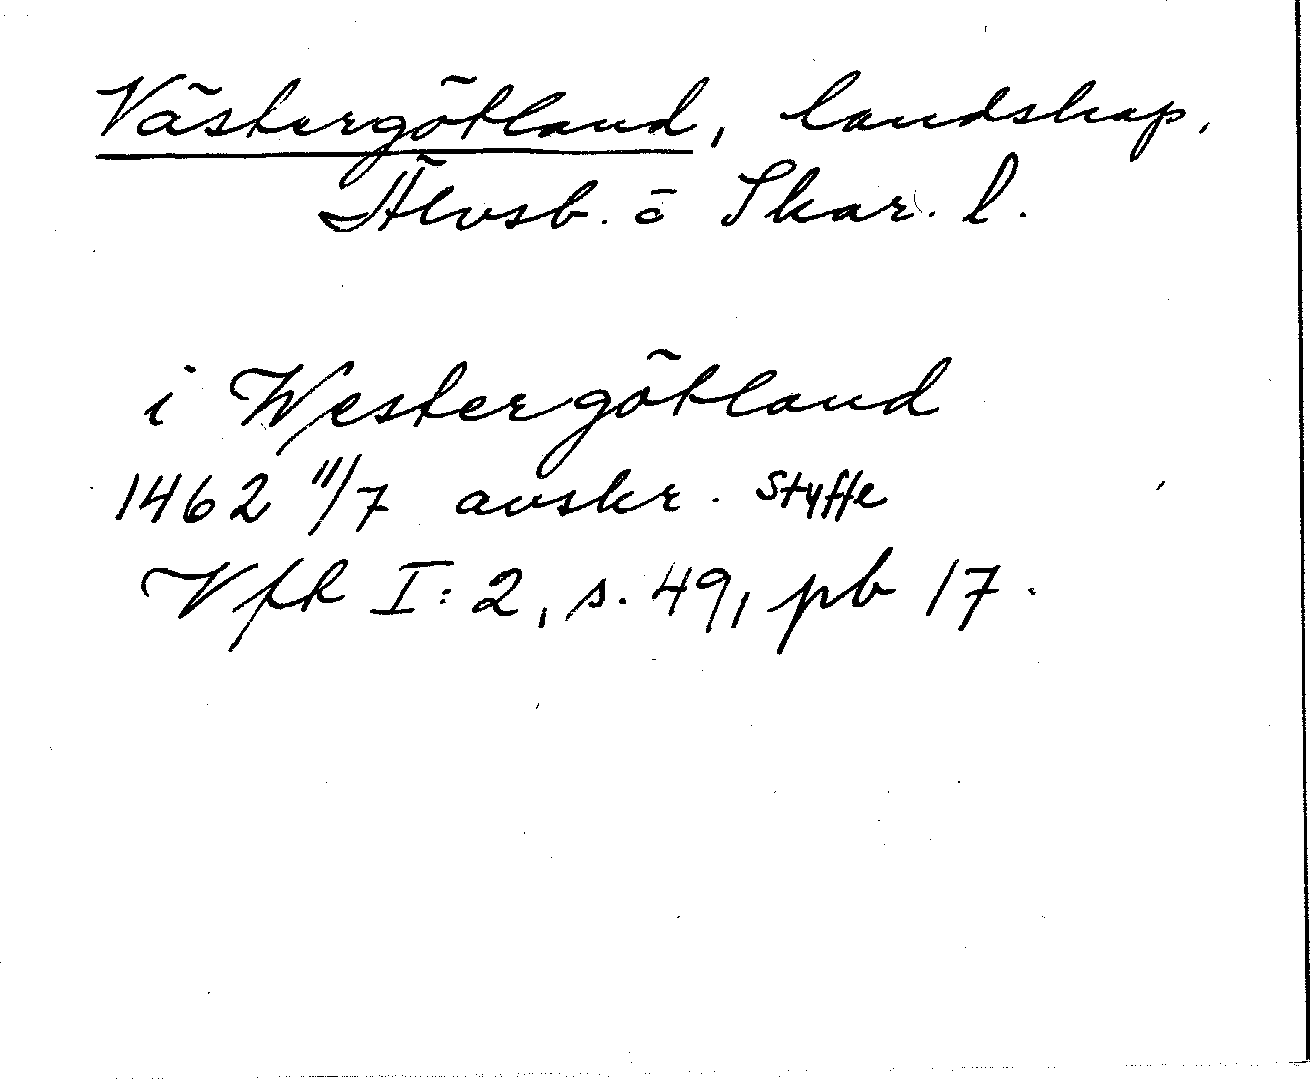 Västergötland, landskap,
Älvsb. o Skar. l.
i Westergötland
1462 11/7 avskr. Styffe
Vfk I:2, s. 49, pb 17.